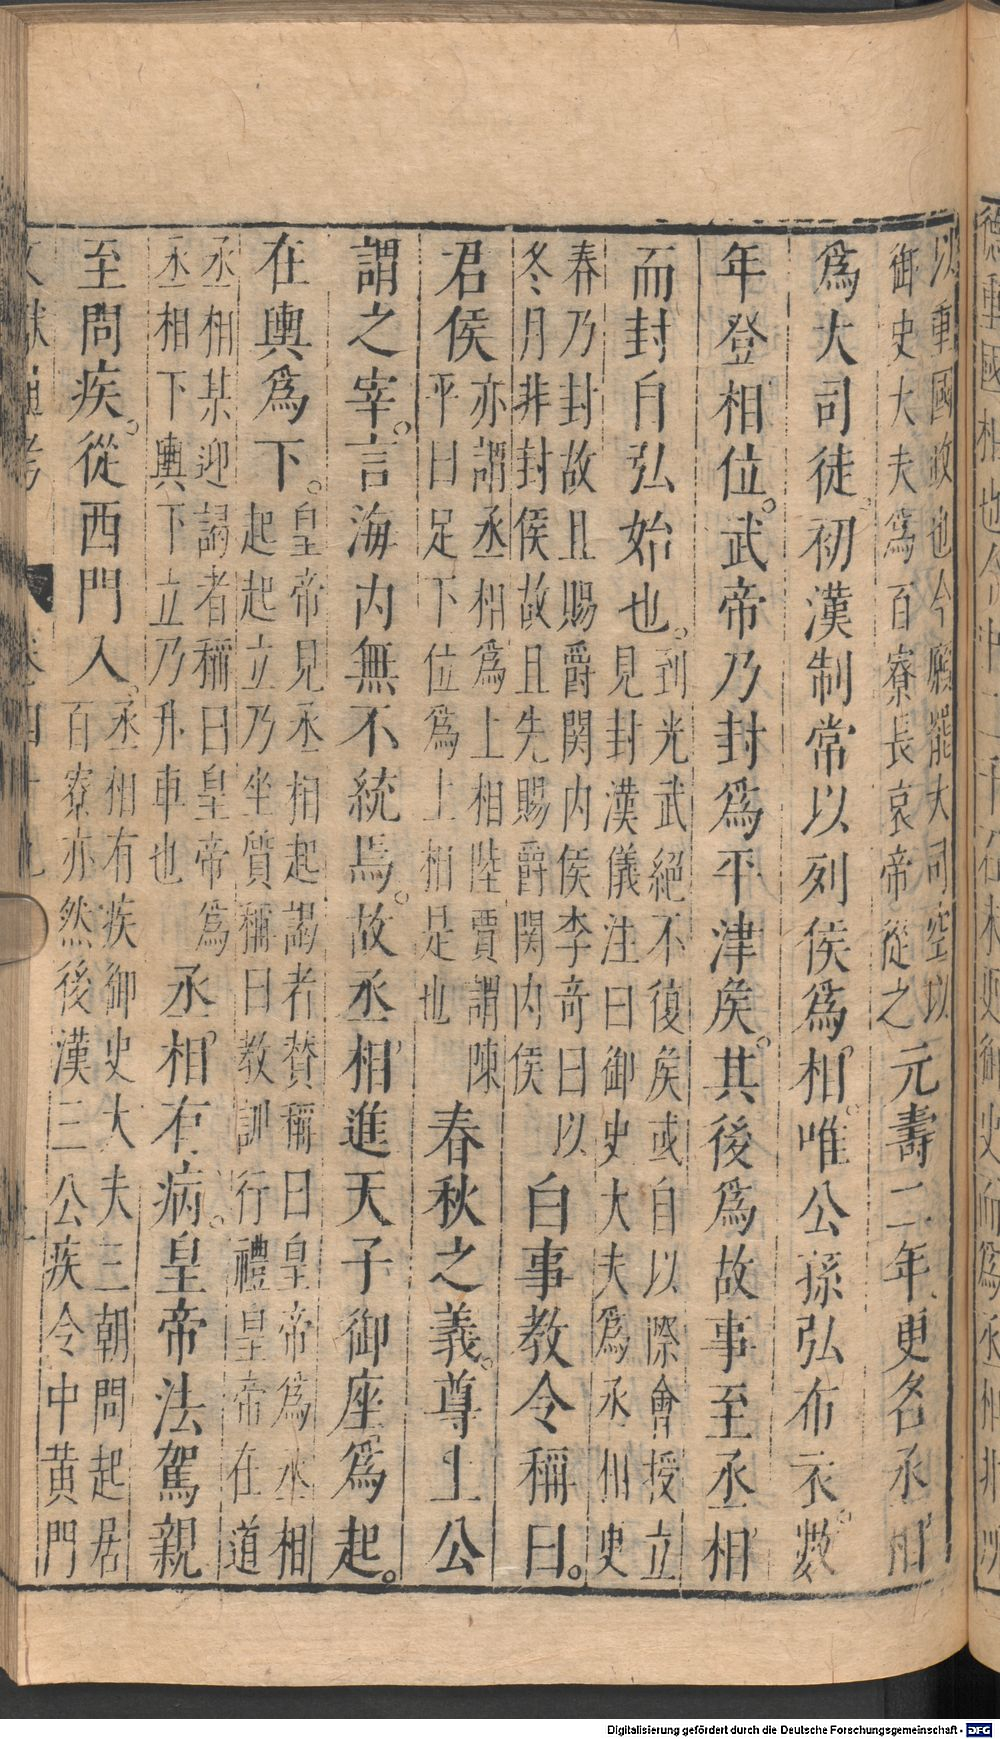 以重國政也今願罷大司空以
御史大夫爲百寮長哀帝從之
元壽二年更名丞相
爲大司徒初漢制常以列侯爲相唯公孫弘布衣數
年登相位武帝乃封爲平津矦其後爲故事至丞相
而封自弘始也
到光武絕不復矦或自以際會授立
見封漢儀注曰御史大夫爲丞相史
春乃封故且賜爵関内侯李奇曰以
冬月非封侯故且先賜爵関内侯
白事教令稱曰
君侯
亦謂丞相爲上相陸賈謂陳
平曰足下位爲上相是也
春秋之義尊上公
謂之宰言海内無不統焉故丞相進天子御座爲起
在輿爲下
皇帝見丞相起謁者賛稱曰皇帝爲丞相
起起立乃坐質稱曰教訓行禮皇帝在道
丞相某迎謁者稱曰皇帝爲
丞相下輿下立乃升車也
丞相有病皇帝法駕親
至問疾從西門入
丞相有疾御史大夫三朝問起居
百寮亦然後漢三公疾令中黃門
Digitalisierung gefördert durch die Deutsche Forschungsgemeinschaft - DFG